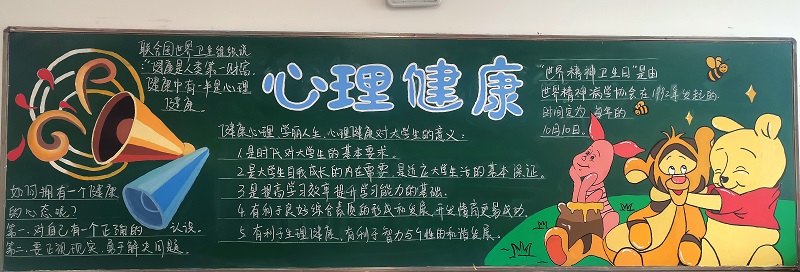 联合国世界卫生组织说
:“健康是人类第一财富,
健康中有一半是心理
健康
心理健康
“世界精神卫生日”是由
世界精神病学协会在1992年发起的.
时间定为每年的
10月10日。
健康心理 学丽人生,心理健康对大学生的意义:
1.是时代对大学生的基本要求。
2.是大学生自我成长的内在需要,是适应大学生活的基本保证。
3.是提高学习效率提升学习能力的基础.
4.有利于良好综合素质的形成和发展,开发情商更易成功.
5.有利于生理健康,有利于智力与个性的和谐发展。
如何拥有一个健康
的心态呢?
第一.对自己有一个正确的 认识。
第二.要正视现实,勇于解决问题。